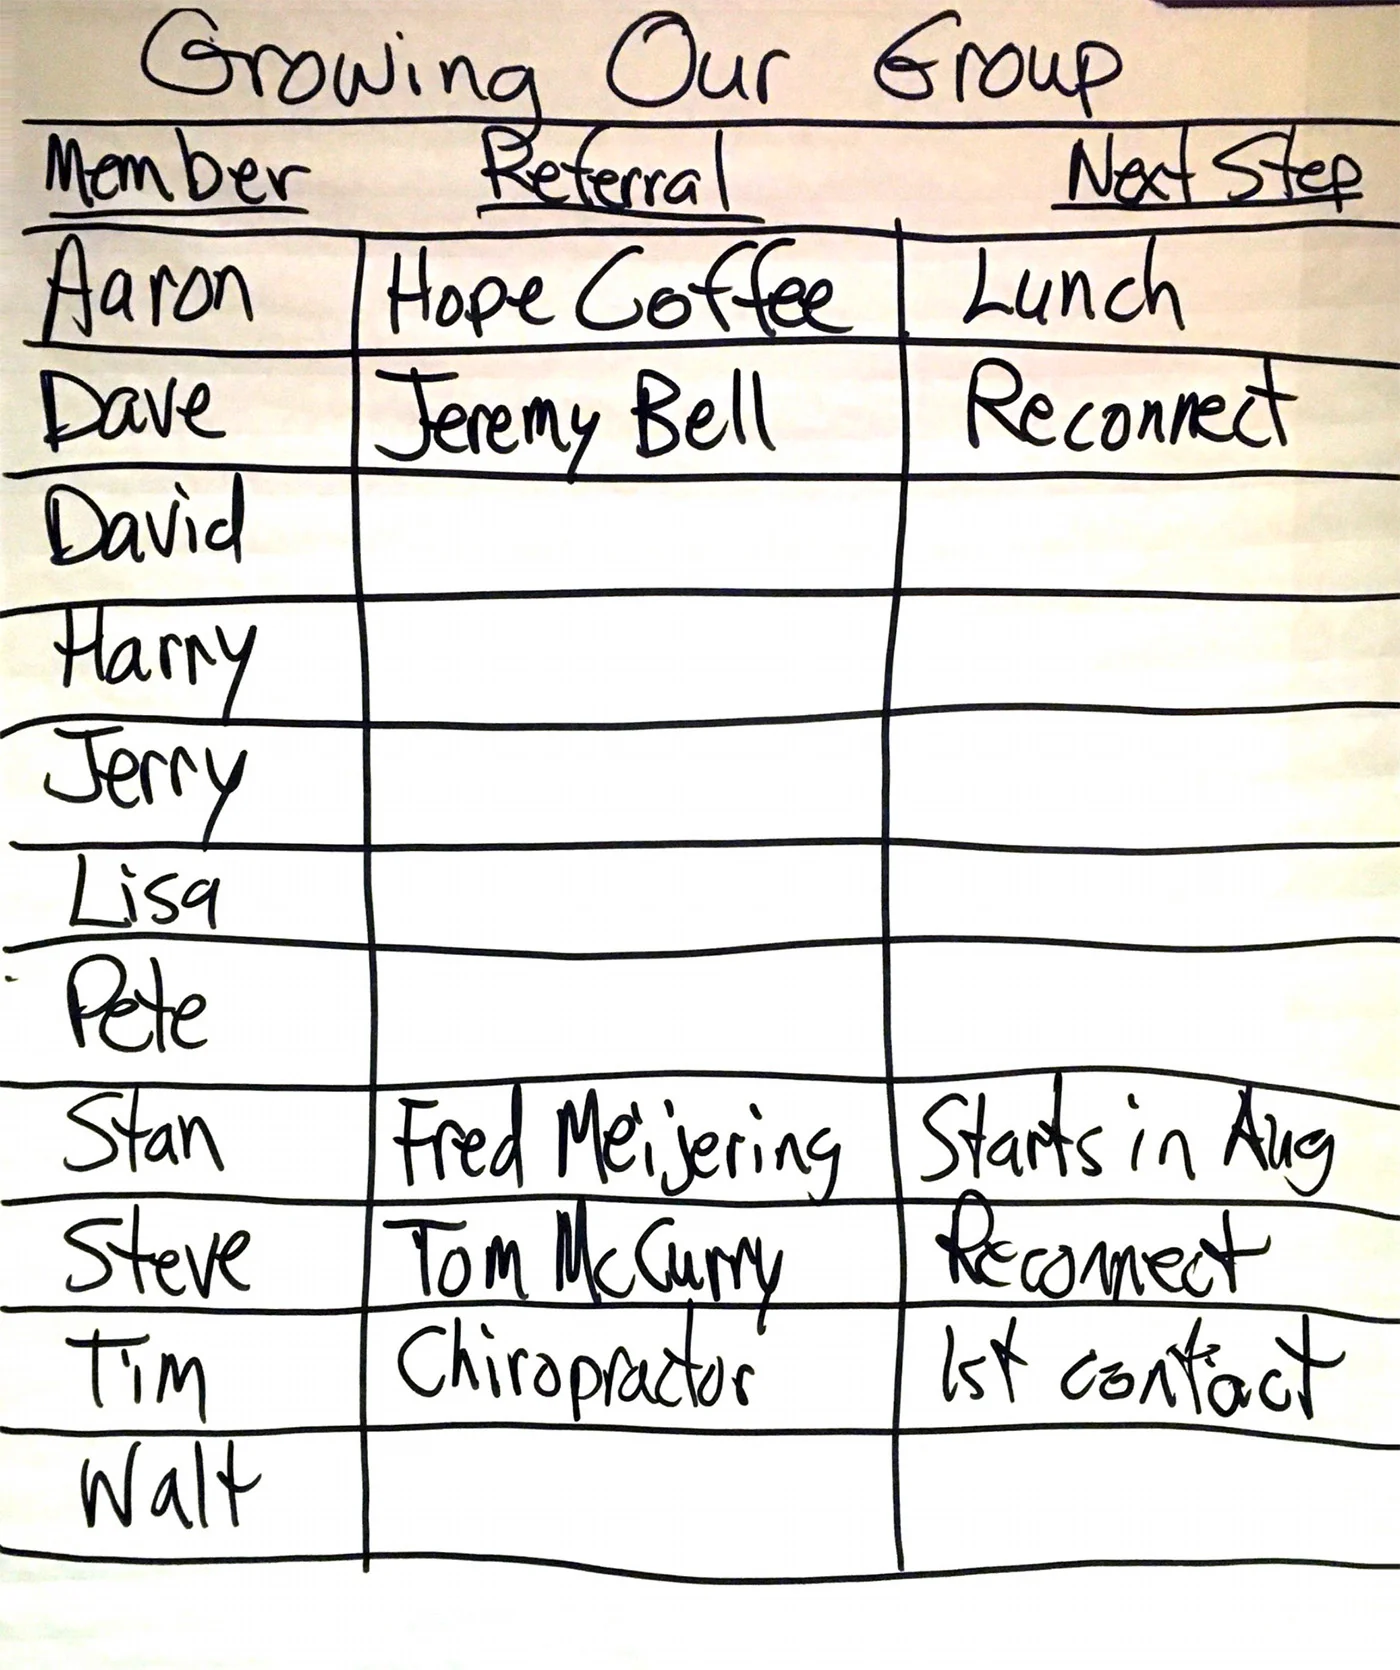 Growing Our Group
Member Referral Next Step
Aaron Hope Coffee Lunch
Dave Jeremy Bell Reconnect
David
Harry
Jerry
Lisa
Pete
Stan Fred Meijering Starts in Aug
Steve Tom McCurry Reconnect
Tim Chiropractor 1st contact
Walt